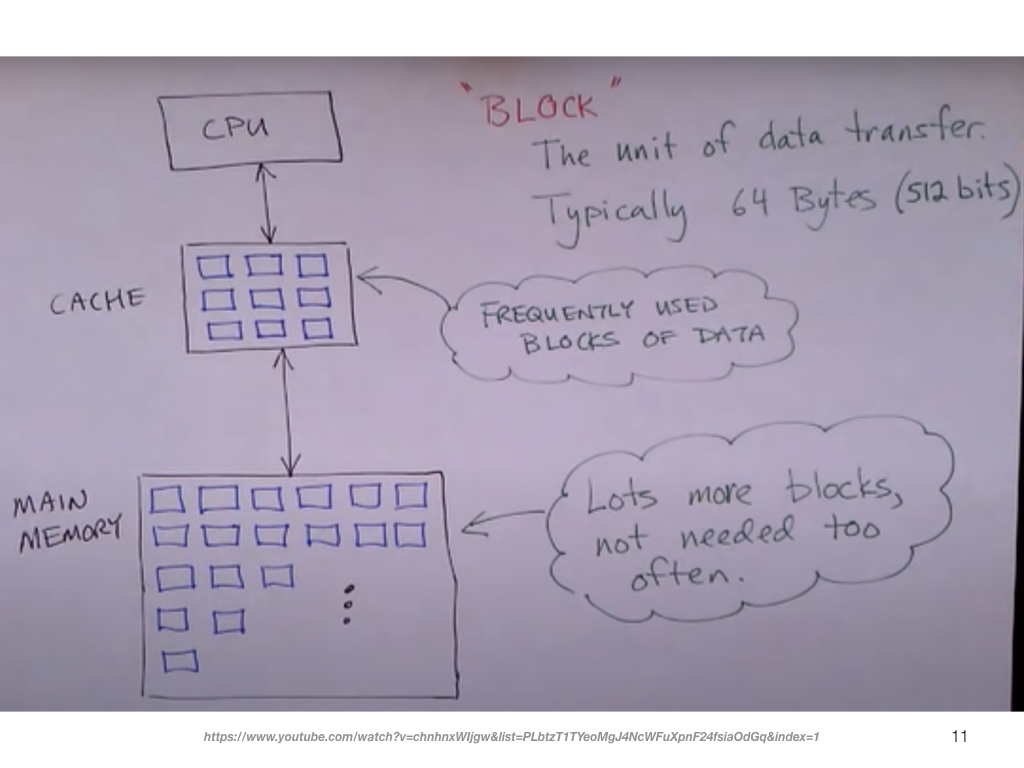 CPU
"BLOCK"
The unit of data transfer.
Typically 64 Bytes (512 bits)
CACHE
FREQUENTLY USED
BLOCKS OF DATA
MAIN
MEMORY
Lots more blocks,
not needed too
often.
https://www.youtube.com/watch?v=chnhnxWIjgw&list=PLbtzT1TYeoMgJ4NcWFuXpnF24fsiaOdGq&index=1
11